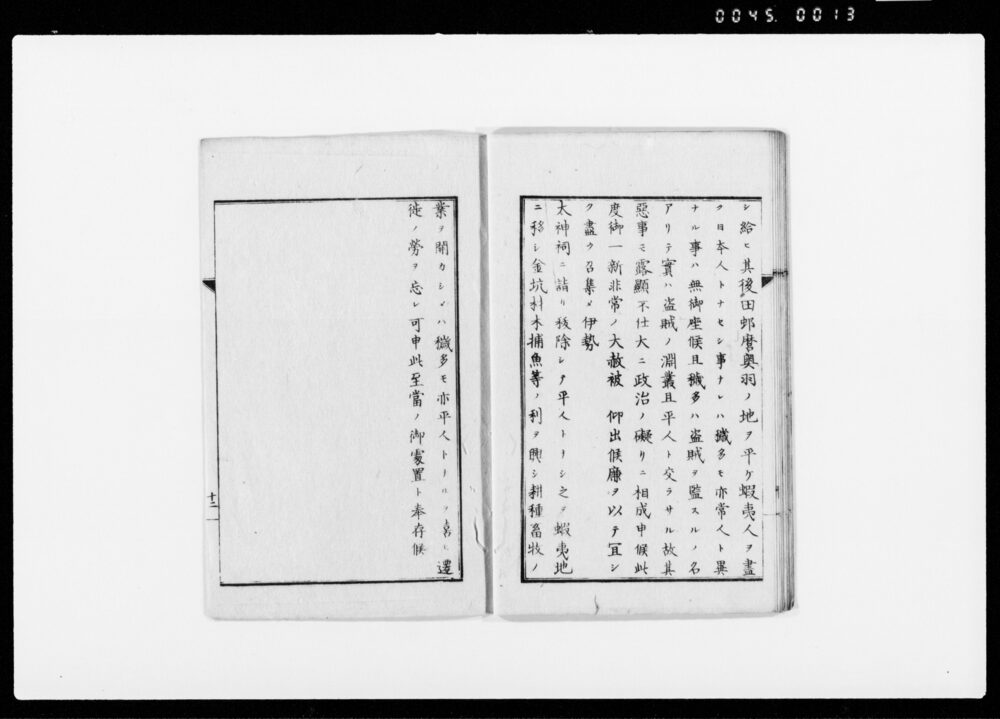 0045. 0013
シ給ヒ其後田邨麿奥羽ノ地ヲ平ケ蝦夷人ヲ盡
ク日本人トナセシ事ナレハ穢多モ亦常人ト異
ナル事ハ無御座候且穢多ハ盗賊ヲ監スルノ名
アリテ實ハ盗賊ノ淵叢且平人ト交ラサル故其
惡事モ露顯不仕大ニ政治ノ礙リニ相成申候此
度御一新非常ノ大赦被　仰出候廉ヲ以テ冝シ
ク盡ク召集メ伊勢
太神祠ニ詣リ秡除シテ平人トナシ之ヲ蝦夷地
ニ移シ金坑材木捕魚等ノ利ヲ興シ耕種畜牧ノ
業ヲ開カシメハ穢多モ亦平人トナルヲ喜ヒ遷
徙ノ勞ヲ忘レ可申此至當ノ御處置ト奉存候
十二